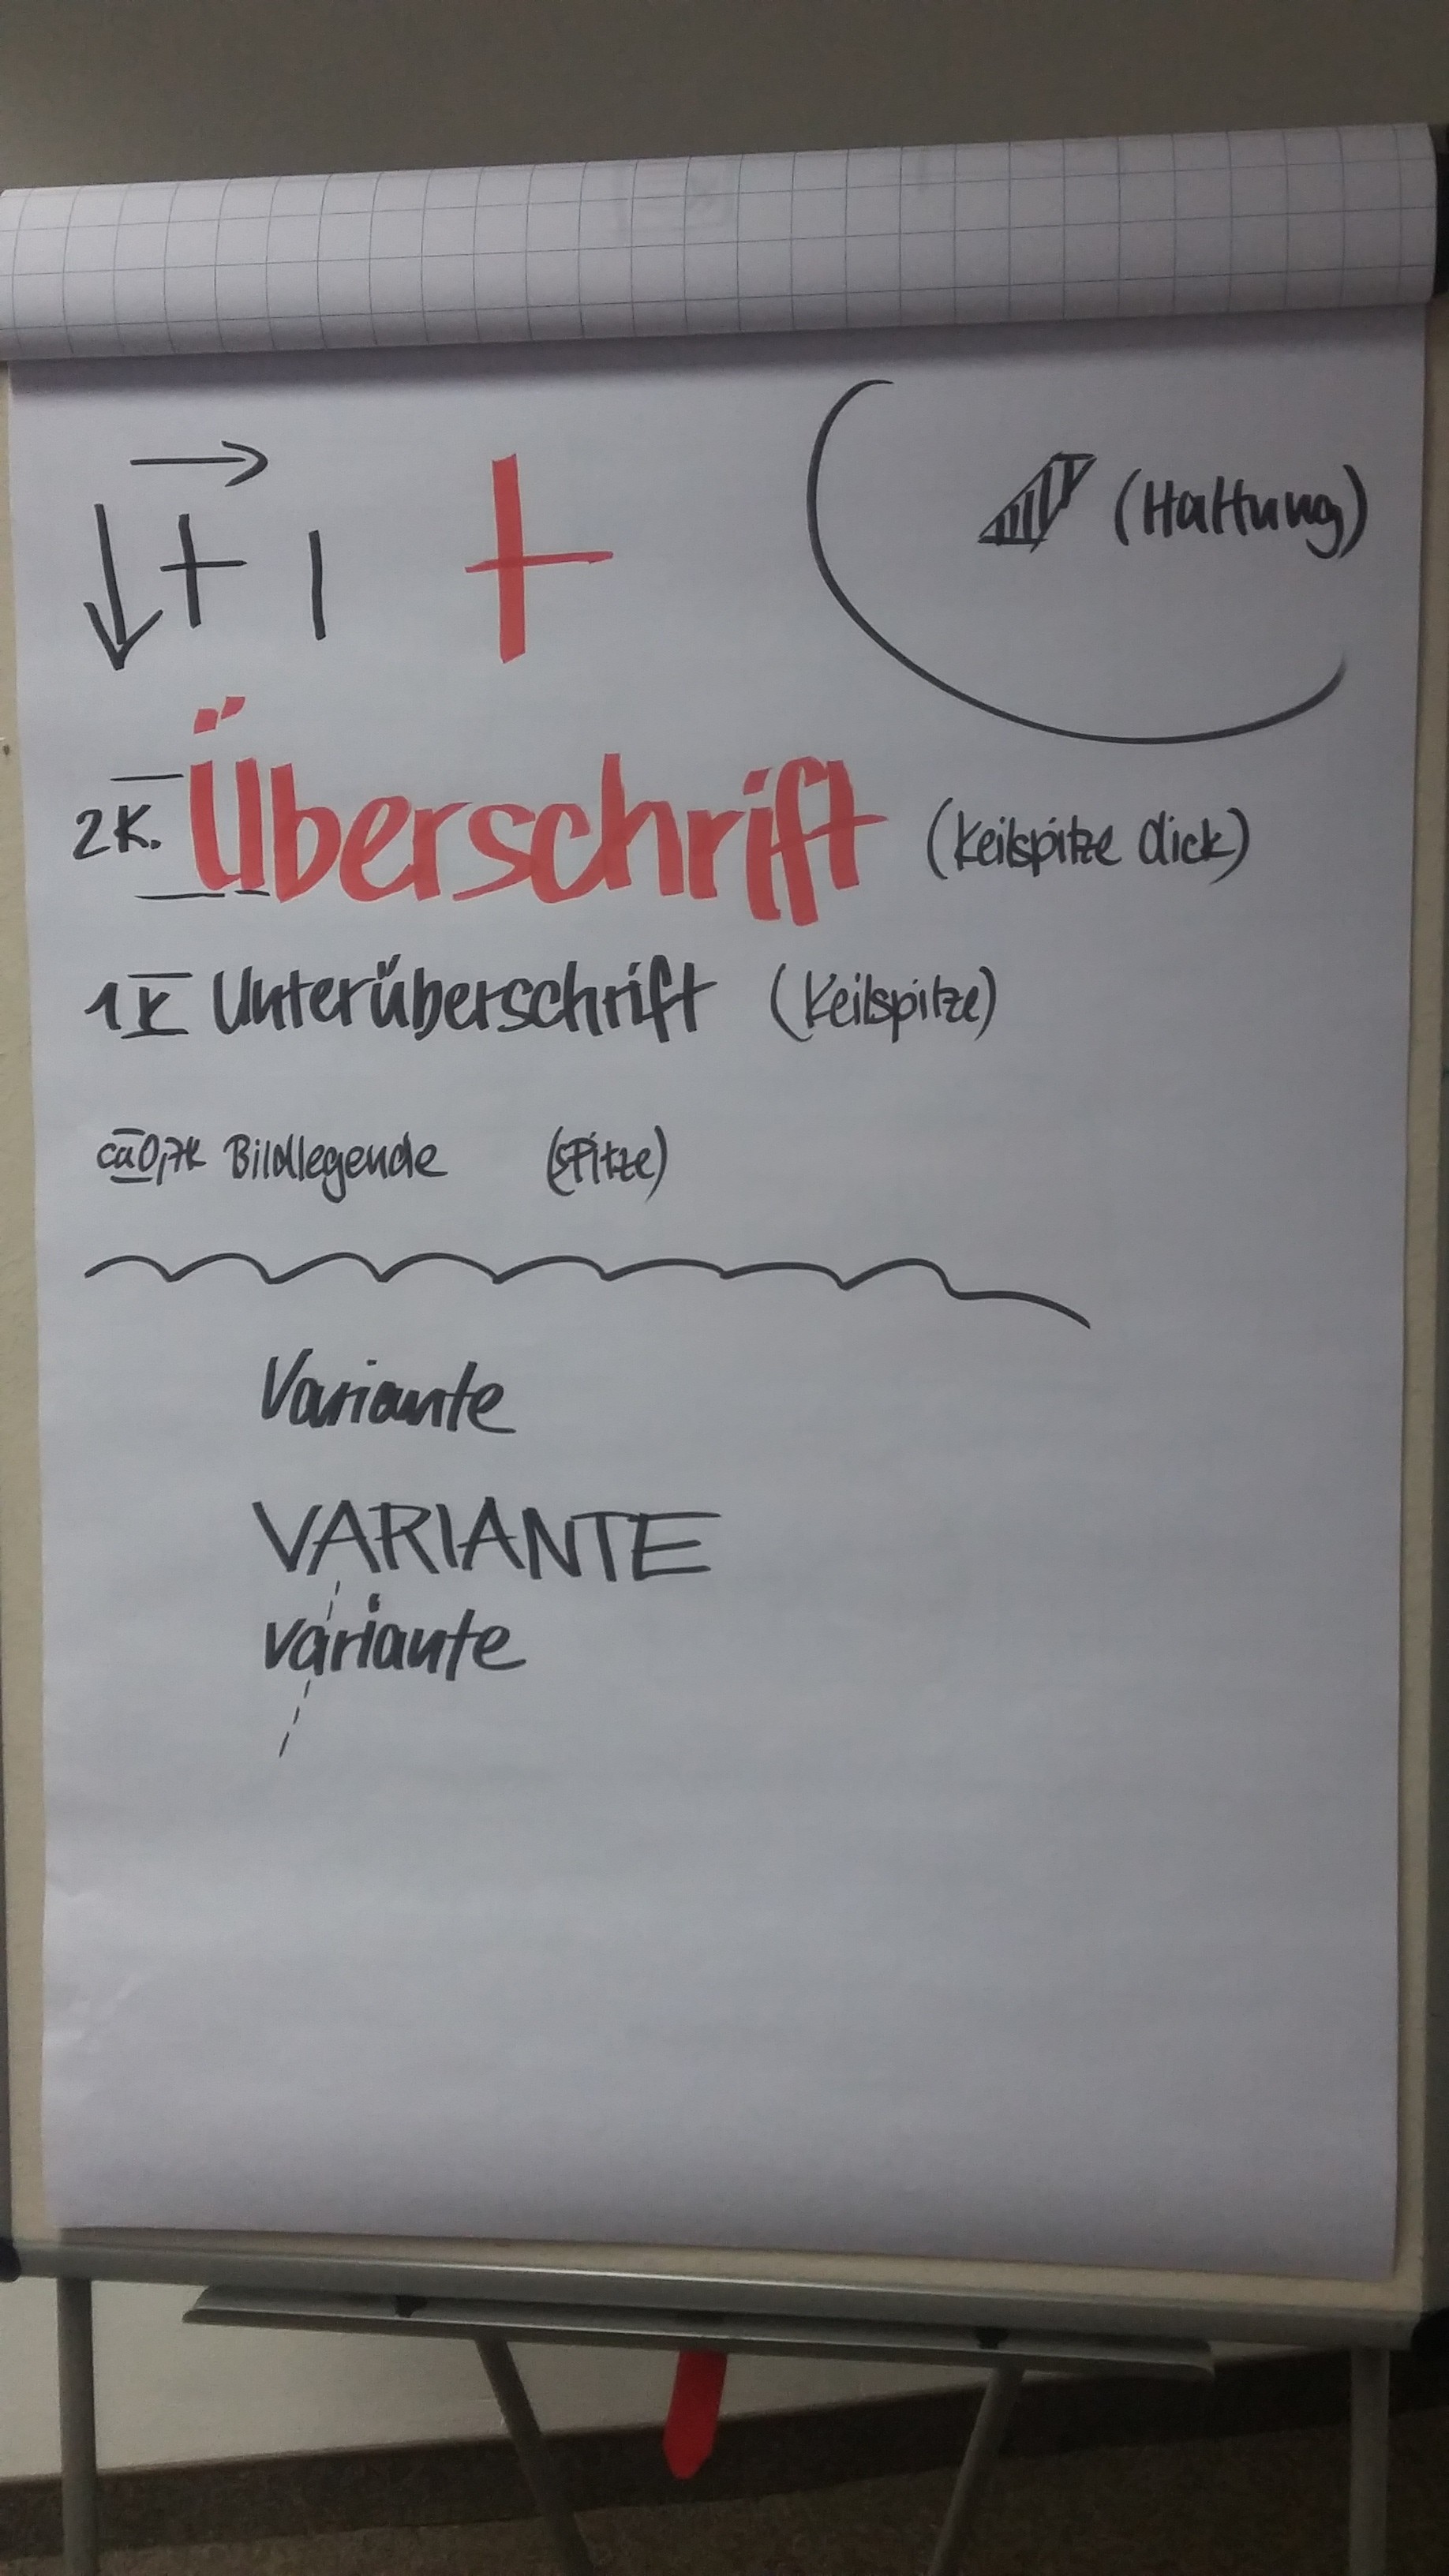 (Haltung)
2K. Überschrift (Keilspitze dick)
1K Unterüberschrift (Keilspitze)
ca 0,7K Bildlegende (Spitze)
Variante
VARIANTE
variante